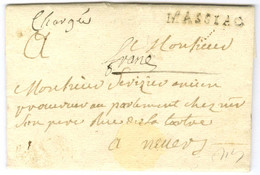 Chargée
MASSIAC
A Monsieur
franc
Monsieur de vizier ancien
procureur au parlement chez mr
son pere Rue de la tartre
a nevers